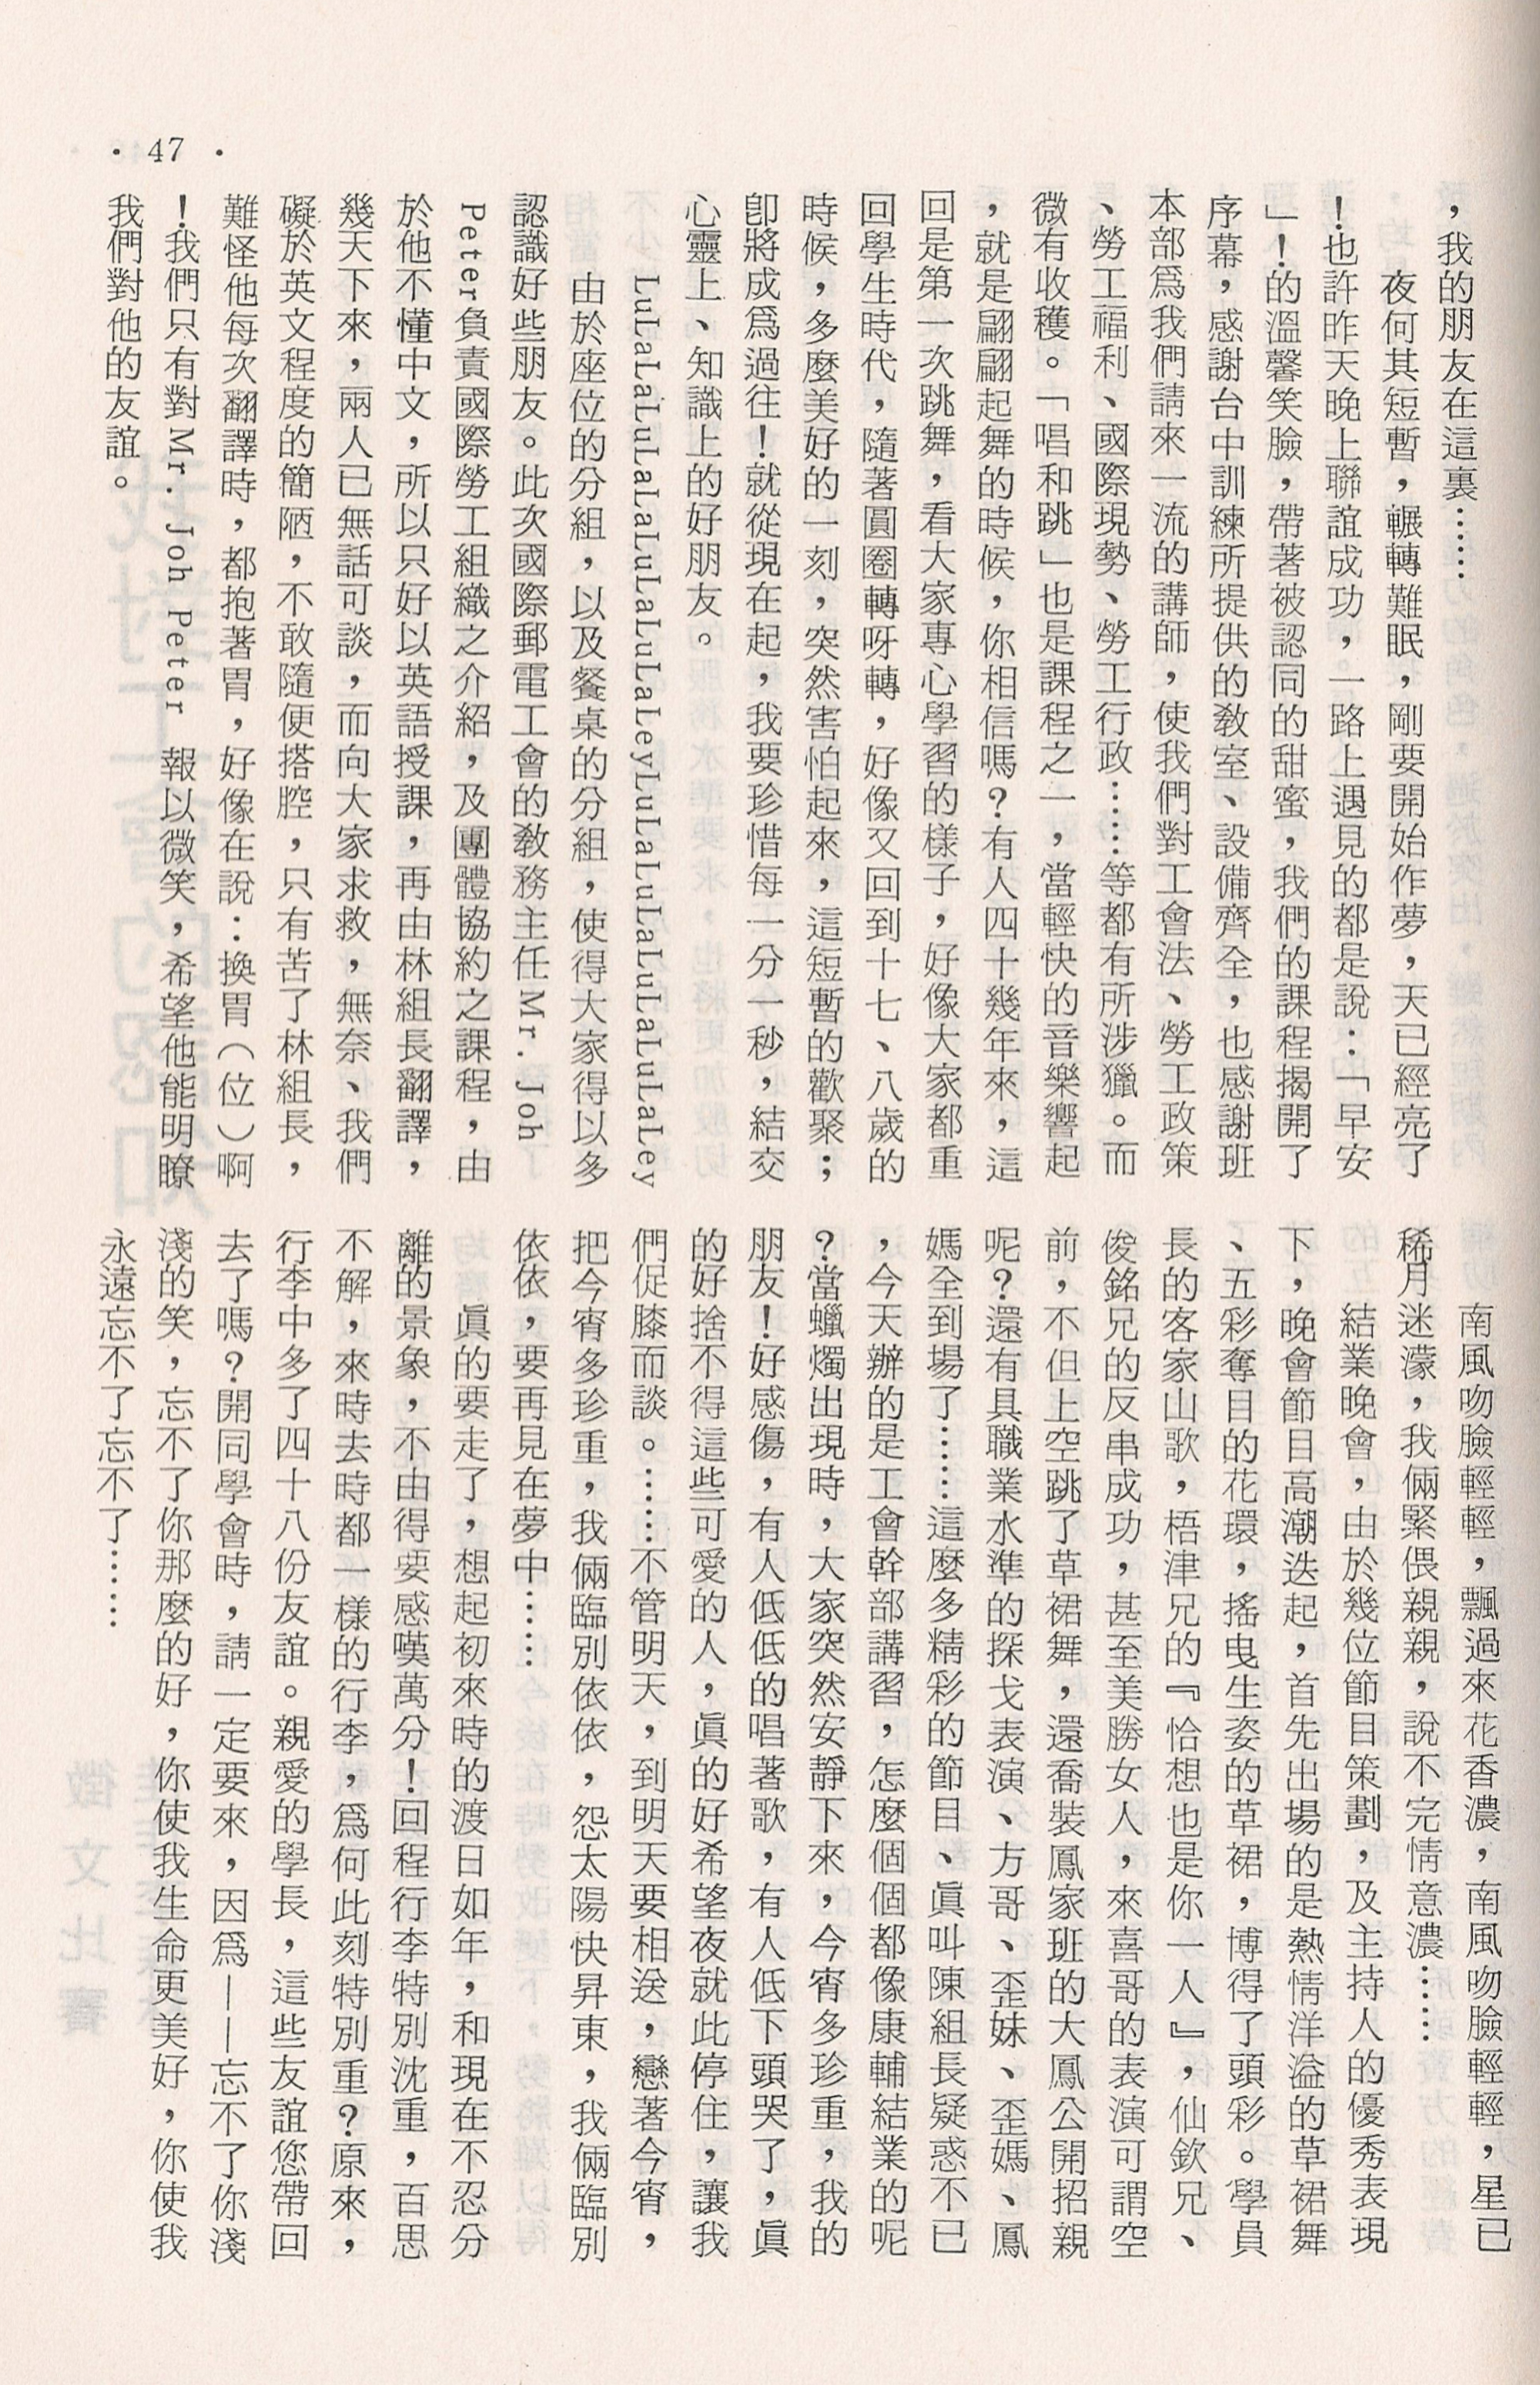 • 47 •
，我的朋友在這裏……
夜何其短暫，輾轉難眠，剛要開始作夢，天已經亮了
！也許昨天晚上聯誼成功，一路上遇見的都是說：「早安
」！的溫馨笑臉，帶著被認同的甜蜜，我們的課程揭開了
序幕，感謝台中訓練所提供的教室、設備齊全，也感謝班
本部爲我們請來一流的講師，使我們對工會法、勞工政策
、勞工福利、國際現勢、勞工行政……等都有所涉獵。而
微有收穫。「唱和跳」也是課程之一，當輕快的音樂響起
，就是翩翩起舞的時候，你相信嗎？有人四十幾年來，這
回是第一次跳舞，看大家專心學習的樣子，好像大家都重
回學生時代，隨著圓圈轉呀轉，好像又回到十七、八歲的
時候，多麼美好的一刻，突然害怕起來，這短暫的歡聚；
卽將成爲過往！就從現在起，我要珍惜每一分一秒，結交
心靈上、知識上的好朋友。
LuLaLaLuLaLaLuLaLuLaLeyLuLaLuLaLuLaLuLaLey
由於座位的分組，以及餐桌的分組，使得大家得以多
認識好些朋友。此次國際郵電工會的教務主任Mr. Joh
Peter負責國際勞工組織之介紹，及團體協約之課程，由
於他不懂中文，所以只好以英語授課，再由林組長翻譯，
幾天下來，兩人已無話可談，而向大家求救，無奈、我們
礙於英文程度的簡陋，不敢隨便搭腔，只有苦了林組長，
難怪他每次翻譯時，都抱著胃，好像在說：換胃（位）啊
！我們只有對Mr. Joh Peter 報以微笑，希望他能明瞭
我們對他的友誼。
南風吻臉輕輕，飄過來花香濃，南風吻臉輕輕，星已
稀月迷濛，我倆緊偎親親，說不完情意濃……
結業晚會，由於幾位節目策劃，及主持人的優秀表現
下，晚會節目高潮迭起，首先出場的是熱情洋溢的草裙舞
、五彩奪目的花環，搖曳生姿的草裙，博得了頭彩。學員
長的客家山歌，梧津兄的『恰想也是你一人』，仙欽兄、
俊銘兄的反串成功，甚至美勝女人，來喜哥的表演可謂空
前，不但上空跳了草裙舞，還喬裝鳳家班的大鳳公開招親
呢？還有具職業水準的探戈表演、方哥、歪妹、歪媽、鳳
媽全到場了……這麼多精彩的節目、眞叫陳組長疑惑不已
，今天辦的是工會幹部講習，怎麼個個都像康輔結業的呢
？當蠟燭出現時，大家突然安靜下來，今宵多珍重，我的
朋友！好感傷，有人低低的唱著歌，有人低下頭哭了，眞
的好捨不得這些可愛的人，眞的好希望夜就此停住，讓我
們促膝而談。……不管明天，到明天要相送，戀著今宵，
把今宵多珍重，我倆臨別依依，怨太陽快昇東，我倆臨別
依依，要再見在夢中……
眞的要走了，想起初來時的渡日如年，和現在不忍分
離的景象，不由得要感嘆萬分！回程行李特別沈重，百思
不解，來時去時都一樣的行李，爲何此刻特別重？原來，
行李中多了四十八份友誼。親愛的學長，這些友誼您帶回
去了嗎？開同學會時，請一定要來，因爲——忘不了你淺
淺的笑，忘不了你那麼的好，你使我生命更美好，你使我
永遠忘不了忘不了……